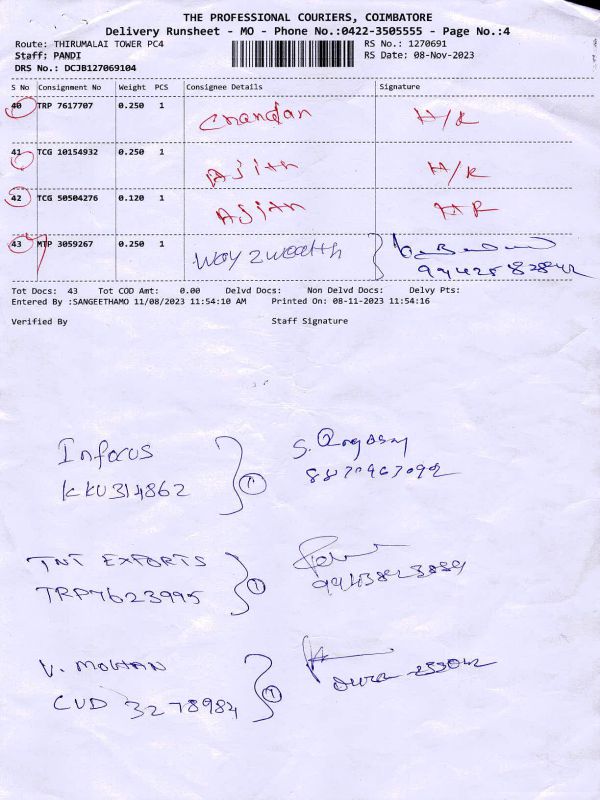 THE PROFESSIONAL COURIERS, COIMBATORE
Delivery Runsheet - MO - Phone No.:0422-3505555 - Page No.:4
Route: THIRUMALAI TOWER PC4 RS No.: 1270691
Staff: PANDI RS Date: 08-Nov-2023
DRS No.: DCJB127069104
S No Consignment No Weight PCS Consignee Details Signature
40 TRP 7617707 0.250 1 Chandan H/R
41 TCG 10154932 0.250 1 Ajith H/R
42 TCG 50504276 0.120 1 Ajith HR
43 MTP 3059267 0.250 1 Way 2 wealth
9942582842
Tot Docs: 43 Tot COD Amt: 0.00 Delvd Docs: Non Delvd Docs: Delvy Pts:
Entered By :SANGEETHAMO 11/08/2023 11:54:10 AM Printed On: 08-11-2023 11:54:16
Verified By Staff Signature
Infocus
KKU314862 1
TNT EXPORTS
TRP7623995 1
V. MOHAN
CUD 3278984 1